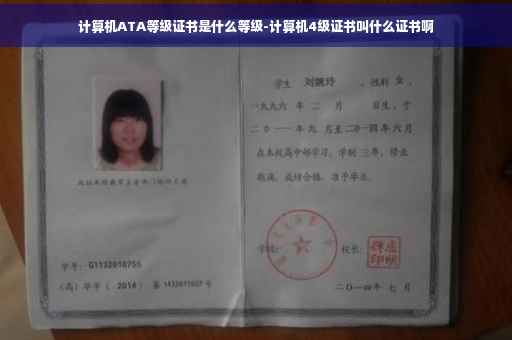 计算机ATA等级证书是什么等级-计算机4级证书叫什么证书啊
学生 刘婉玲 ,性别 女 ,
一九九六 年 二 月 日生,于
二〇一一年 九 月至二〇一四年 六 月
在本校高中部学习,学制 三年,修业
期满,成绩合格,准予毕业。
学校:
校长:
学号: G1132010755
(高)毕字( 2014 )第 1432011027 号
二〇一四年 七 月